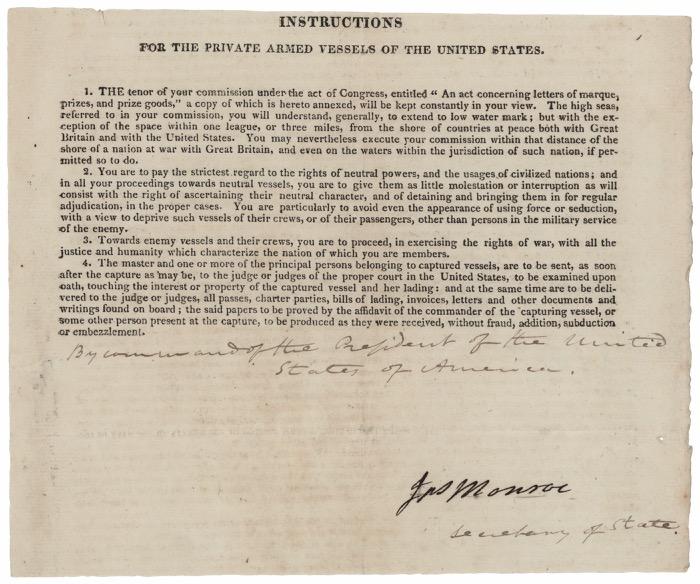 INSTRUCTIONS
FOR THE PRIVATE ARMED VESSELS OF THE UNITED STATES.
1. THE tenor of your commission under the act of Congress, entitled “ An act concerning letters of marque,
prizes, and prize goods,” a copy of which is hereto annexed, will be kept constantly in your view. The high seas,
referred to in your commission, you will understand, generally, to extend to low water mark ; but with the ex-
ception of the space within one league, or three miles, from the shore of countries at peace both with Great
Britain and with the United States. You may nevertheless execute your commission within that distance of the
shore of a nation at war with Great Britain, and even on the waters within the jurisdiction of such nation, if per-
mitted so to do.
2. You are to pay the strictest regard to the rights of neutral powers, and the usages of civilized nations ; and
in all your proceedings towards neutral vessels, you are to give them as little molestation or interruption as will
consist with the right of ascertaining their neutral character, and of detaining and bringing them in for regular
adjudication, in the proper cases. You are particularly to avoid even the appearance of using force or seduction,
with a view to deprive such vessels of their crews, or of their passengers, other than persons in the military service
of the enemy.
3. Towards enemy vessels and their crews, you are to proceed, in exercising the rights of war, with all the
justice and humanity which characterize the nation of which you are members.
4. The master and one or more of the principal persons belonging to captured vessels, are to be sent, as soon
after the capture as may be, to the judge or judges of the proper court in the United States, to be examined upon
oath, touching the interest or property of the captured vessel and her lading : and at the same time are to be deli-
vered to the judge or judges, all passes, charter parties, bills of lading, invoices, letters and other documents and
writings found on board ; the said papers to be proved by the affidavit of the commander of the capturing vessel, or
some other person present at the capture, to be produced as they were received, without fraud, addition, subduction
or embezzlement.
By command of the President of the United
States of America.
Jas Monroe
Secretary of State.